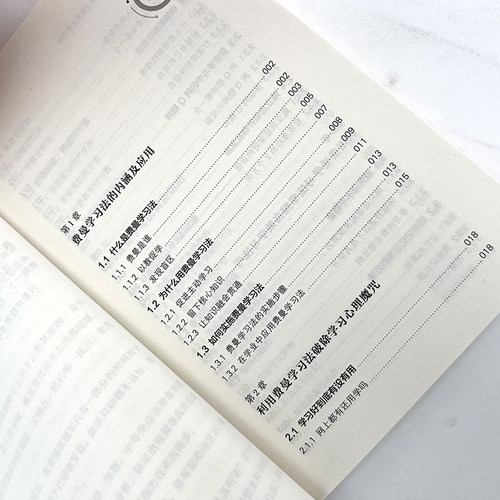 第1章
费曼学习法的内涵及应用
1.1 什么是费曼学习法 002
1.1.1 费曼是谁 002
1.1.2 以教促学 003
1.1.3 发现盲区 005
1.2 为什么用费曼学习法 007
1.2.1 促进主动学习 008
1.2.2 留下核心知识 009
1.2.3 让知识融会贯通 011
1.3 如何实施费曼学习法 013
1.3.1 费曼学习法的实施步骤 013
1.3.2 在学业中应用费曼学习法 015
第2章
利用费曼学习法破除学习心理魔咒
2.1 学习好到底有没有用 018
2.1.1 网上都有还用学吗 018